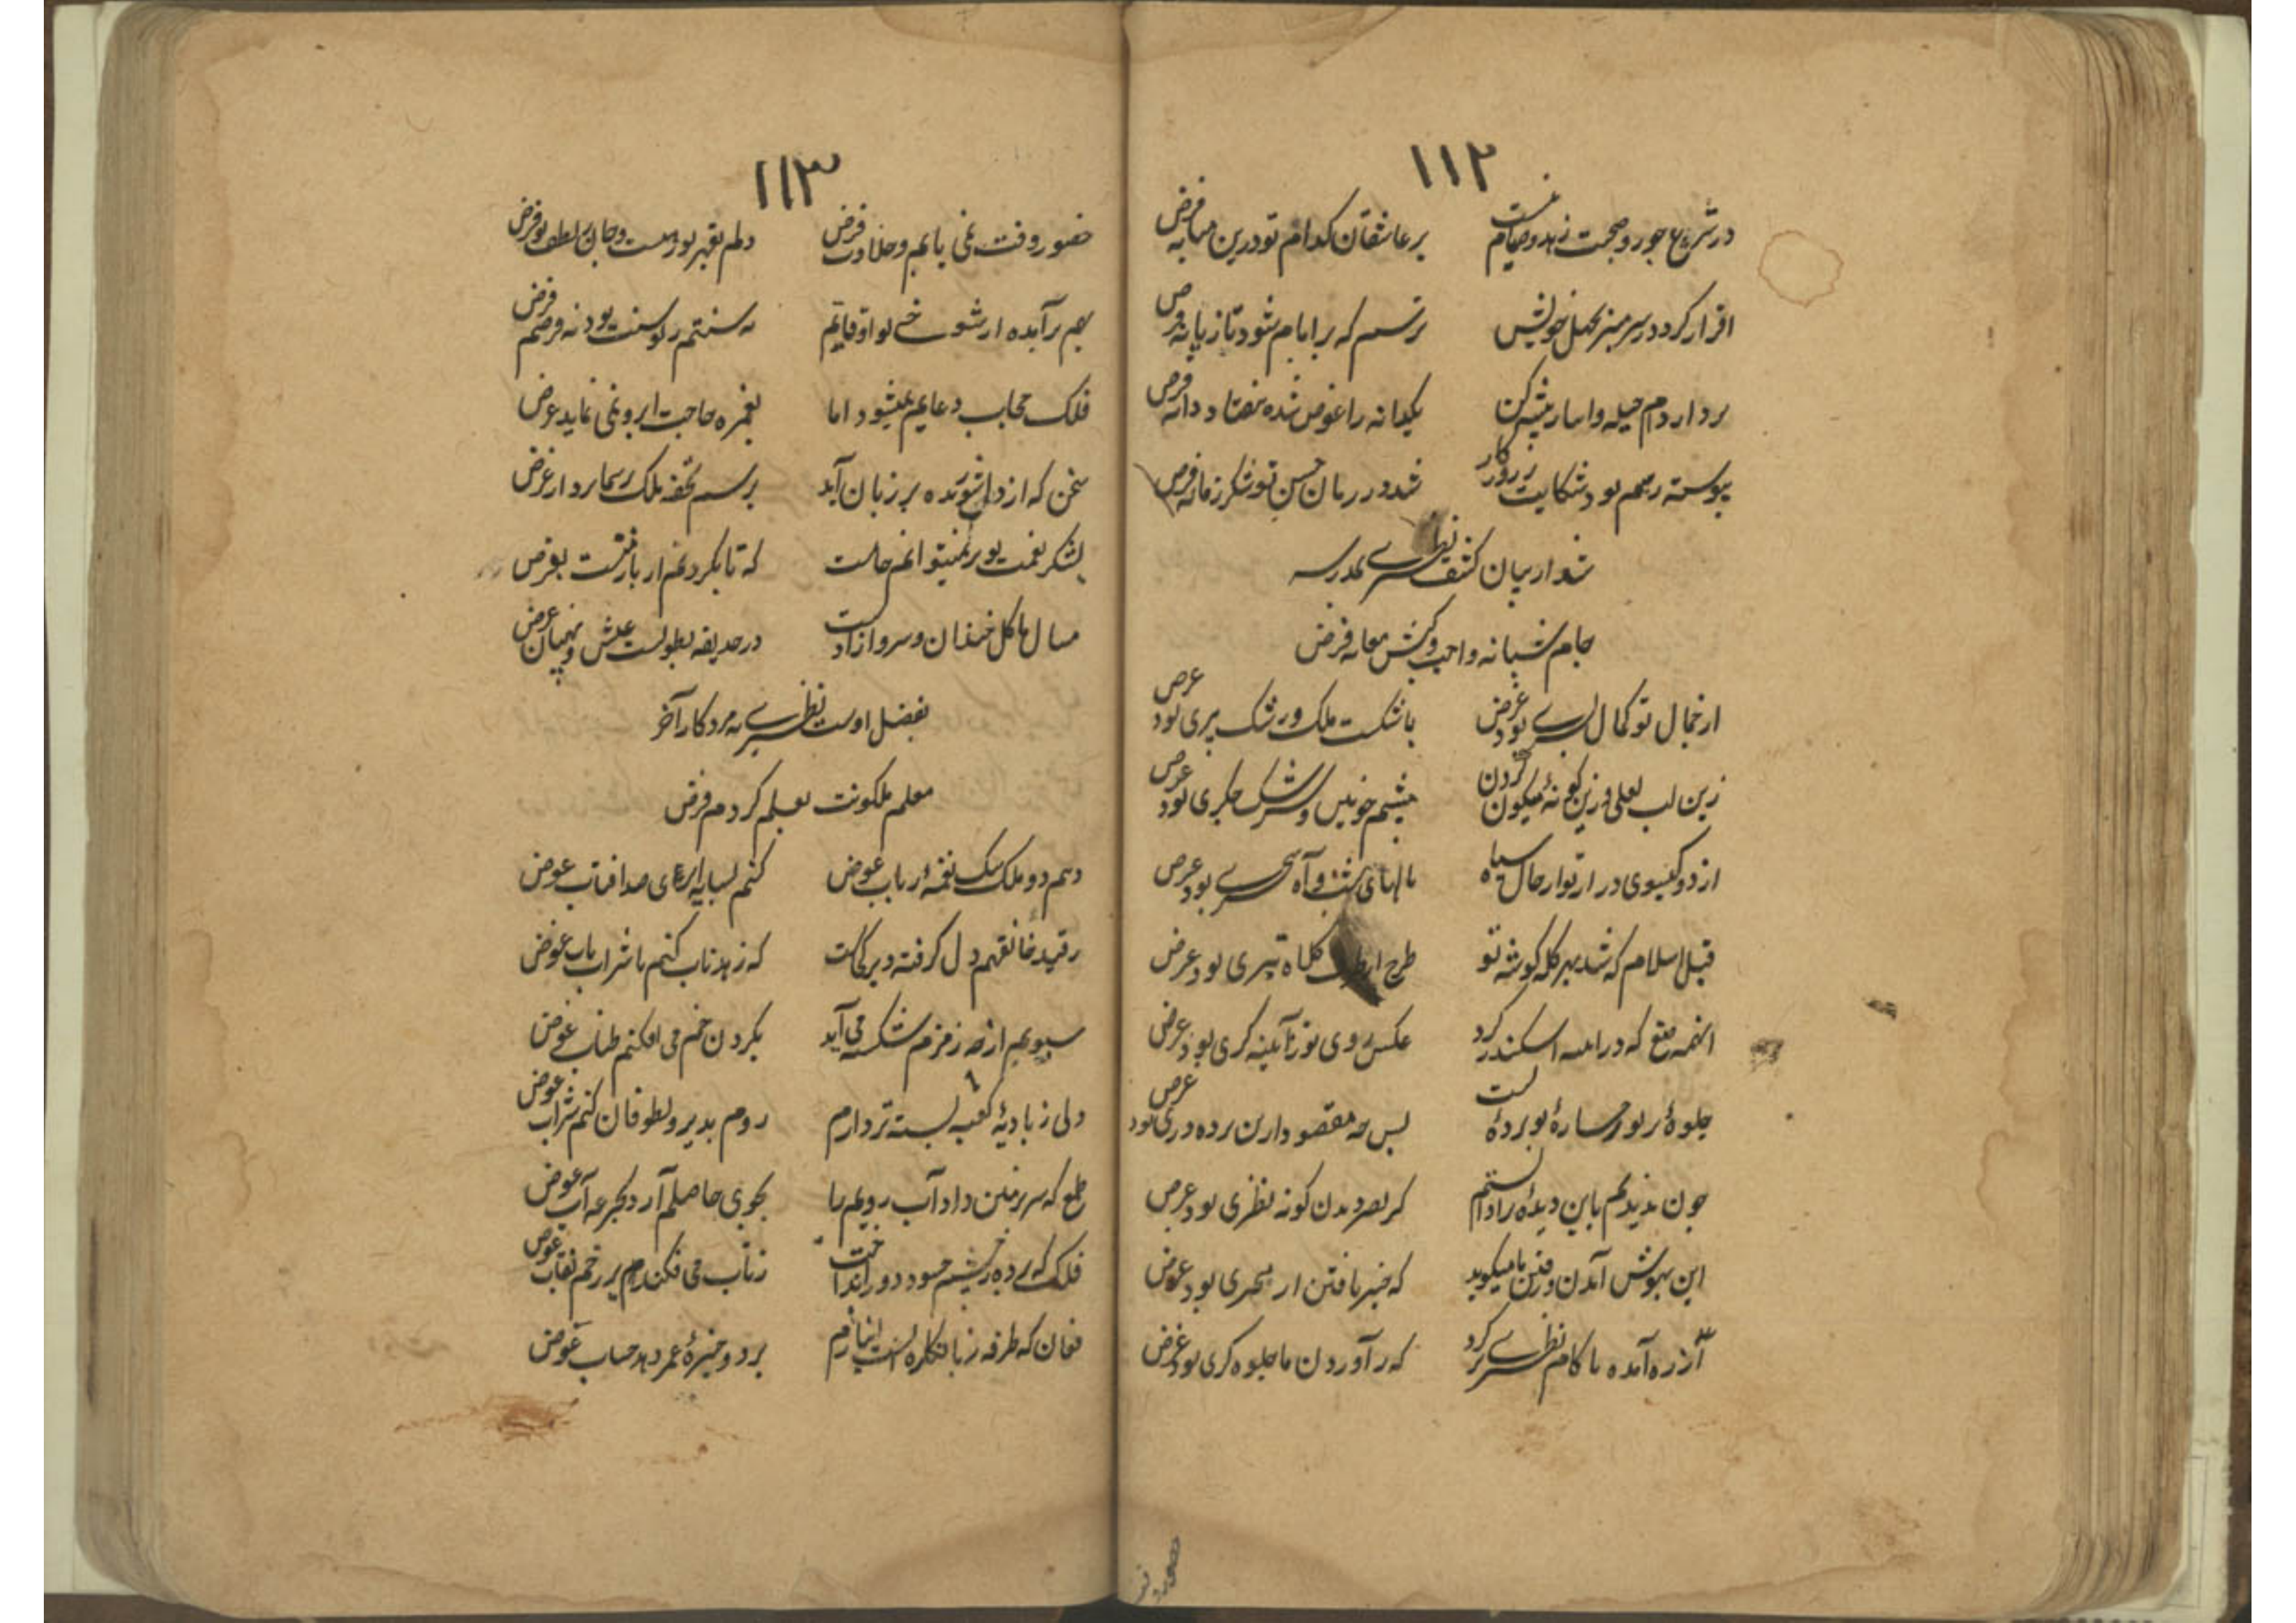 ۱۱۲
در شرع جور و صحبت زهد و صیام نیست بر عاشقان کدام تو درین میانه فرض
اقرار کرد در سر منبر بجهل خویش ترسم که بر امام شود تازیانه فرض
بردار دام حیله و ریش کن یکدانه را عوض شده هفتاد دانه فرض
پیوسته رسم بود شکایت ز روزگار شد در زمان حسن تو شکر زمانه فرض
شد از بیان کشف نظیری بمدرسه
جام شبانه واجب و کیش مغانه فرض
از جمال تو کمال بشری بود غرض با شکست ملک و رشک پری بود غرض
زین لب لعلی و زین گونهٔ میگون کردن چشم خونین و سرشک جگری بود غرض
از دو گیسوی دراز تو و از خال سیاه نالهای شب و آه سحری بود غرض
قبلهٔ اسلام که شد بهر کله گوشه تو طرح از طرف کلاه تتری بود غرض
اینهمه صنع که در آینه اسکندر کرد عکس روی تو ز آیینه گری بود غرض
جلوهٔ بر تو رخسارهٔ تو پرده بست بس که مقصود ازین پرده دری بود غرض
چون ندیدیم باین دیده ترا دانستم کز بصر دیدن کوته نظری بود غرض
این بیهوش آمدن و رفتن ما میگوید که خبر یافتن از بیخبری بود غرض
از ره آمده ناکام نظیری برگرد که ز آوردن ما جلوه گری بود غرض
۱۱۳
حضور وقت نمی یابم و حلاوت فرض دلم بقهر تو مست و جان بلطف تو قرض
بهم برآمده از شوخی تو اوقاتم نه سنتم بر تو سنت بود نه فرضم فرض
فلک حجاب دعایم نمیشود اما بغمزه حاجت ابرو نمی نماید عرض
سخن که از دل شوریده بر زبان آید برسم تحفه ملک بر سما برد از ارض
بشکر نعمت تو بر نمیتوانم خاست که تا بگردنم از بار منت بقرض
مثال ما گل خندان و سرو آزادست در حدیقه بطولست عیش و پهنا عرض
بفضل اوست نظیری نه مزد کار آخر
معلم ملکوتت بعلم کردم فرض
دهم دو ملک بیک نغمهٔ رباب عوض کنم بسایه ابری صد آفتاب عوض
رقید خانقهم دل گرفته دیر کجاست که زهد ناب کنم با شراب ناب عوض
سبویم از چه زمزم شکسته می آید بگردن خم می افکنم طناب عوض
دلی ز بادیهٔ کعبه تشنه تر دارم روم بدیر و بطوفان کنم شراب عوض
طمع که بر سر من داد آب رویم را بجوی حاصلم آرد بجرعه آب عوض
فلک که پرده ز چشم حسود دور انداخت ز تاب می فکندم بر رخم نقاب عوض
فغان که طرفه زیانکاره ایست انبازم برد ذخیرهٔ عمر و دهد حساب عوض